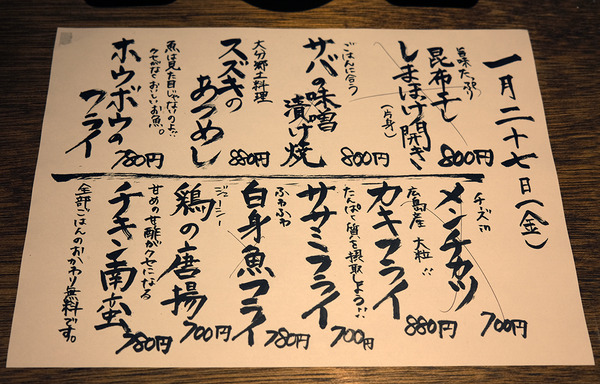 一月二十七日(金)
旨味たっぷり
昆布干し
しまほっけ開き
(片身)
800円
ごはんに合う
サバの味噌
漬け焼
800円
大分郷土料理
スズキの
あつめし
880円
魚は見た目じゃないのよ!!
クセがなくおいしいお魚。
ホウボウの
フライ
780円
チーズin
メンチカツ
700円
広島産 大粒!!
カキフライ
880円
たんぱく質を摂取しよう!!
ササミフライ
700円
ふわふわ
白身魚フライ
780円
ジューシー
鶏の唐揚
700円
甘めの甘酢がクセになる
チキン南蛮
780円
全部ごはんのおかわり無料です。